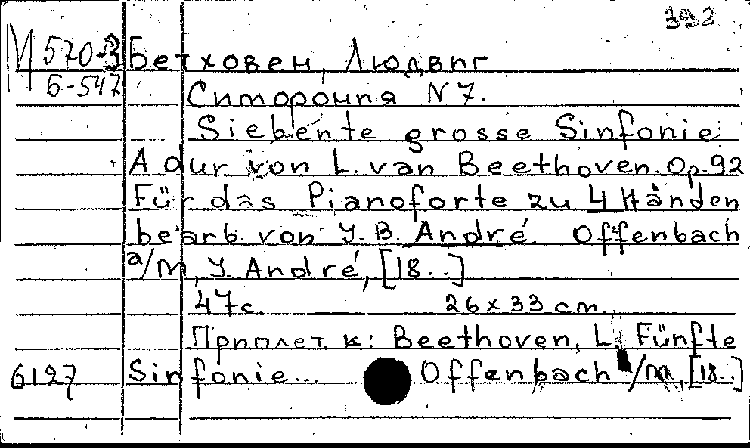 392
М 570-3 Бетховен, Людвиг
Б-547
Симфония N 7.
Siebente grosse Sinfonie
A dur von L. van Beethoven. Op. 92
Für das Pianoforte zu 4 Händen
bearb. von J. B. André. Offenbach
a/M, J. André, [18..]
47 с. 26 x 33 cm.
Приплет. к: Beethoven, L. Fünfte
6127 Sinfonie... Offenbach a/M, [18..]